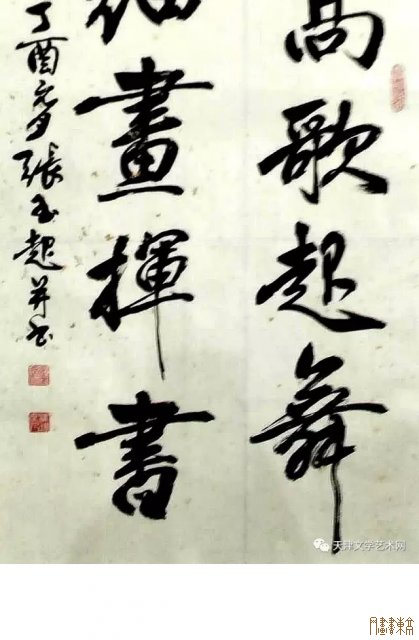 高歌起舞
畫揮書
丁酉張玉并书
天津文学艺术网